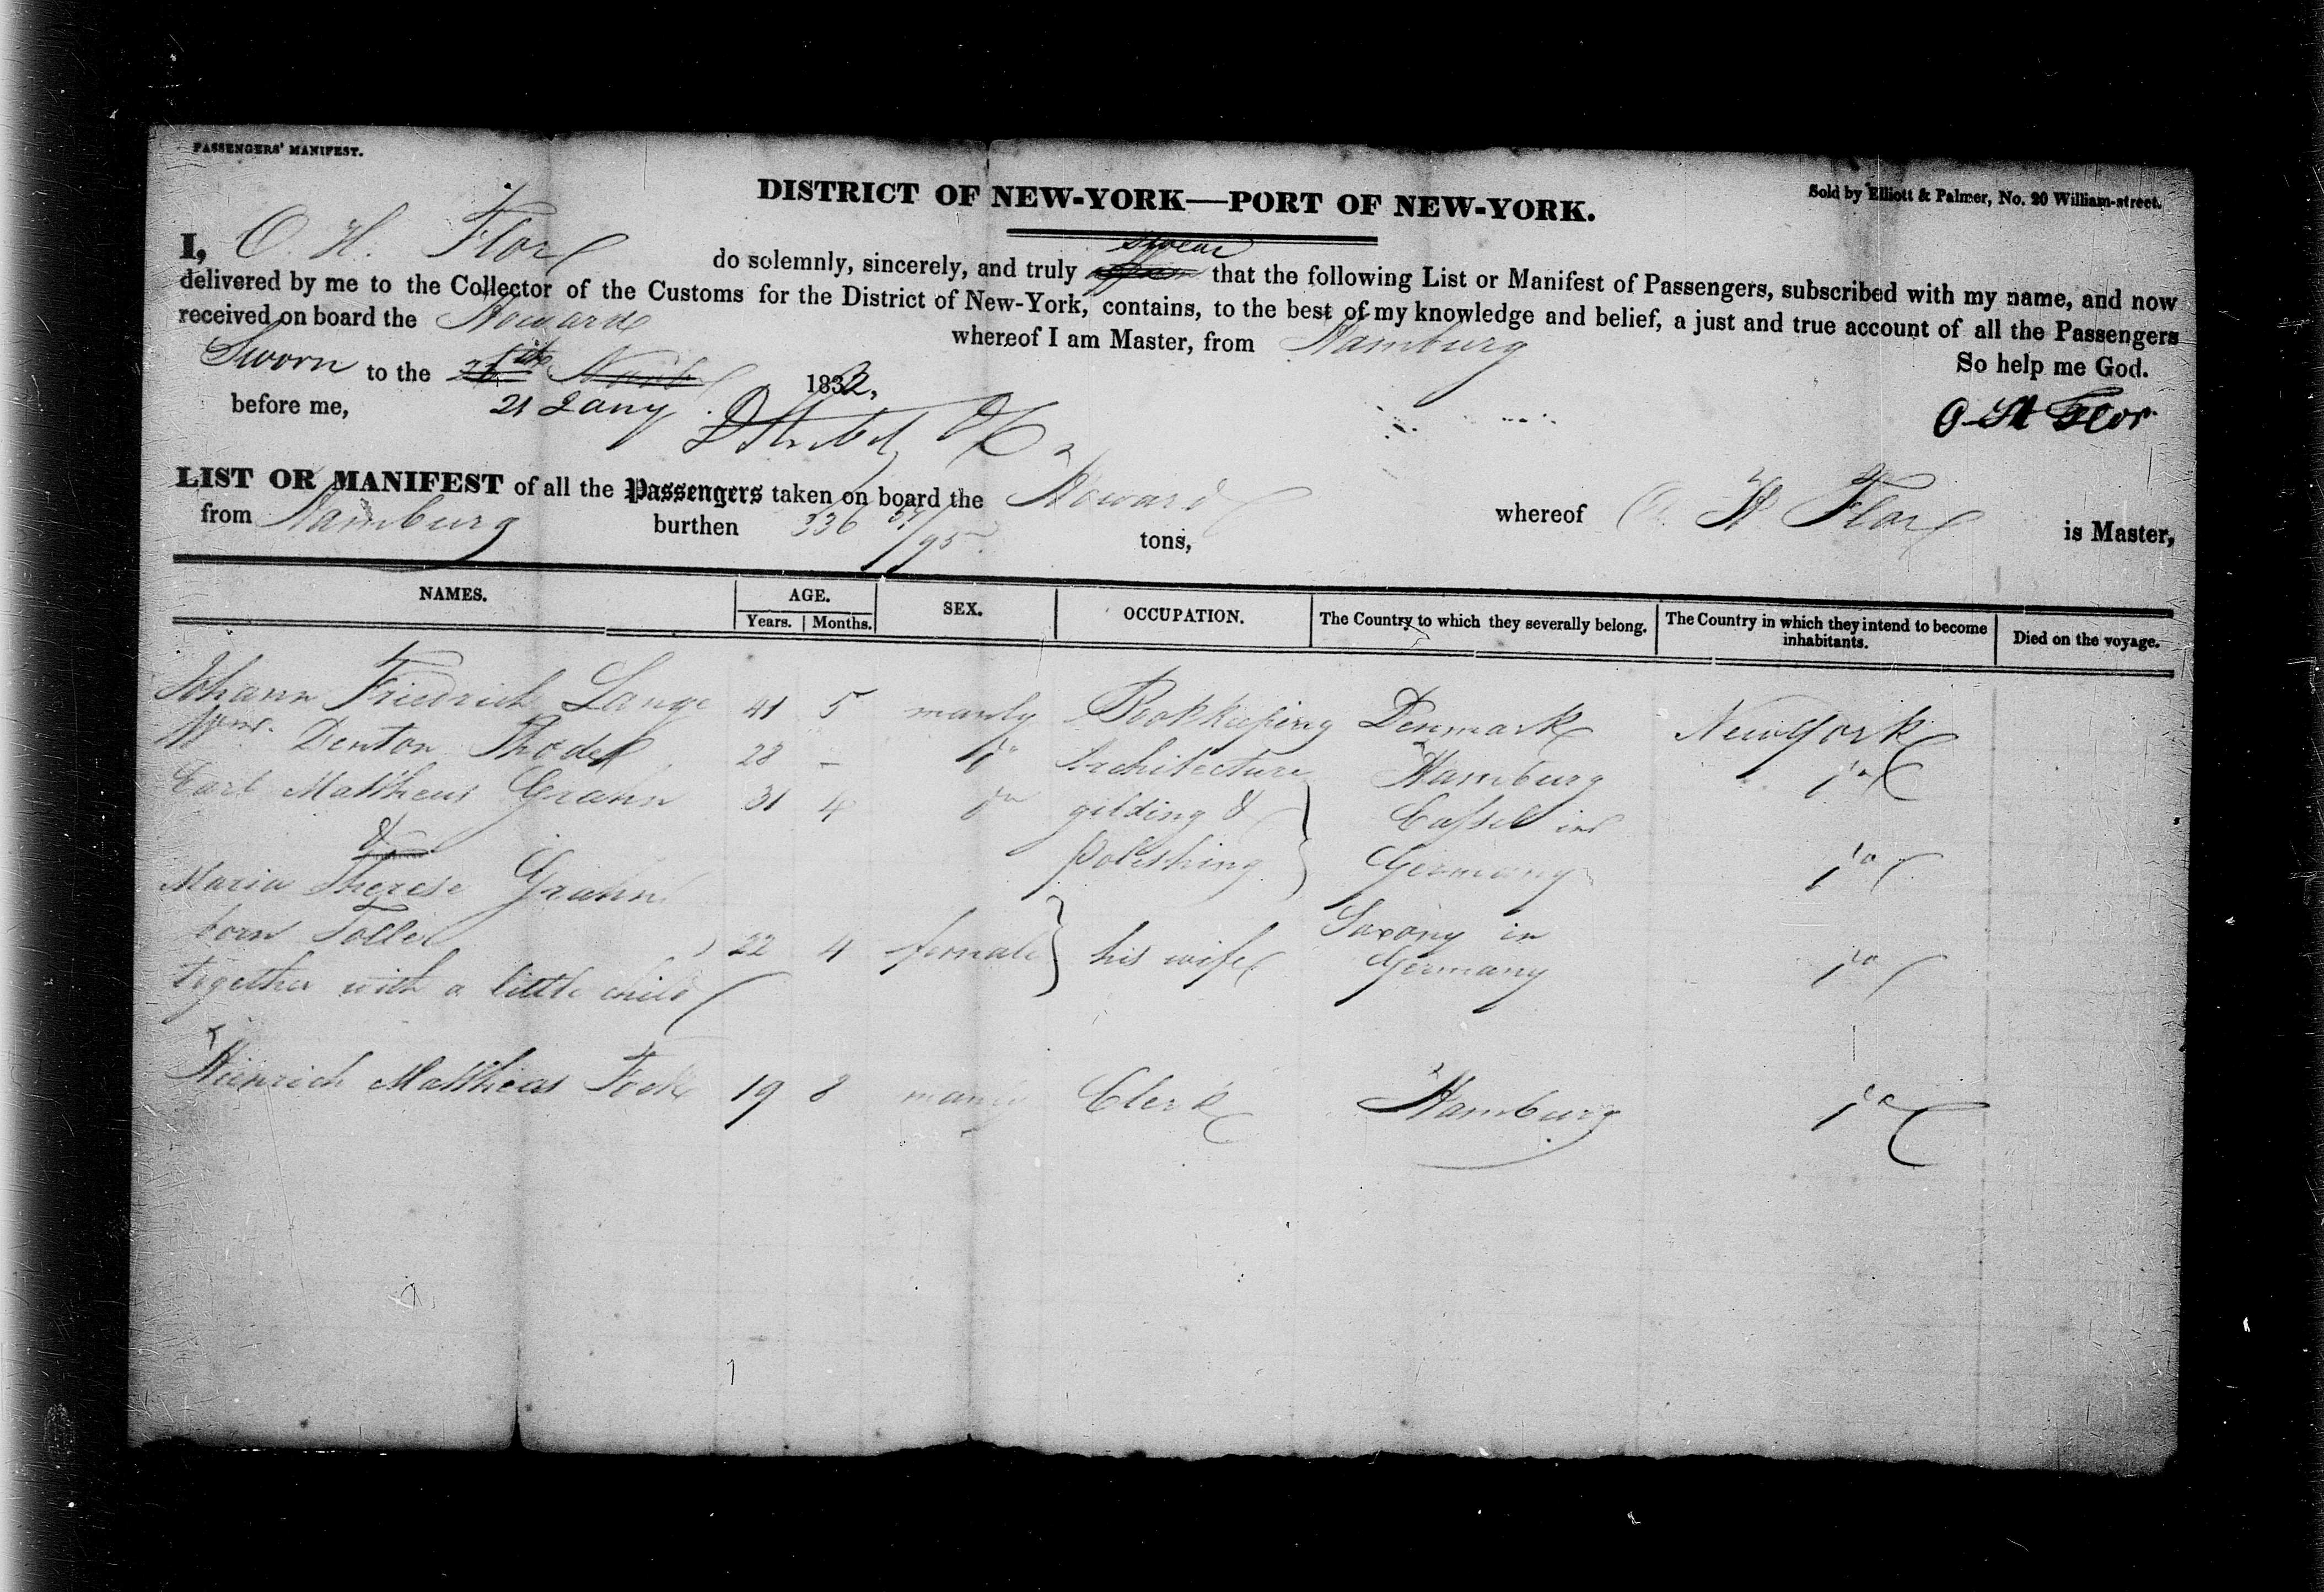 PASSENGERS' MANIFEST.
DISTRICT OF NEW-YORK—PORT OF NEW-YORK.
Sold by Elliott & Palmer, No. 20 William-street.
I, O. H. Flor do solemnly, sincerely, and truly swear that the following List or Manifest of Passengers, subscribed with my name, and now
delivered by me to the Collector of the Customs for the District of New-York, contains, to the best of my knowledge and belief, a just and true account of all the Passengers
received on board the Howard whereof I am Master, from Hamburg
So help me God.
Sworn to the 1832.
before me, 21 Jany
O H Flor
LIST OR MANIFEST of all the Passengers taken on board the Howard whereof O. H Flor is Master,
from Hamburg burthen 336 /95 tons,
NAMES. AGE. SEX. OCCUPATION. The Country to which they severally belong. The Country in which they intend to become inhabitants. Died on the voyage.
Years. Months.
Johann Friedrich Lange 41 5 manly Bookkeeping Denmark New York
Denton 28 - do Architecture Hamburg do
Carl Mattheus Grahn 31 4 do gilding & Cassel in
& polishing Germany do
Maria Therese Grahn
born Toller 22 4 female his wife Saxony in Germany do
together with a little child
Heinrich Matthias Fock 19 8 manly Clerk Hamburg do